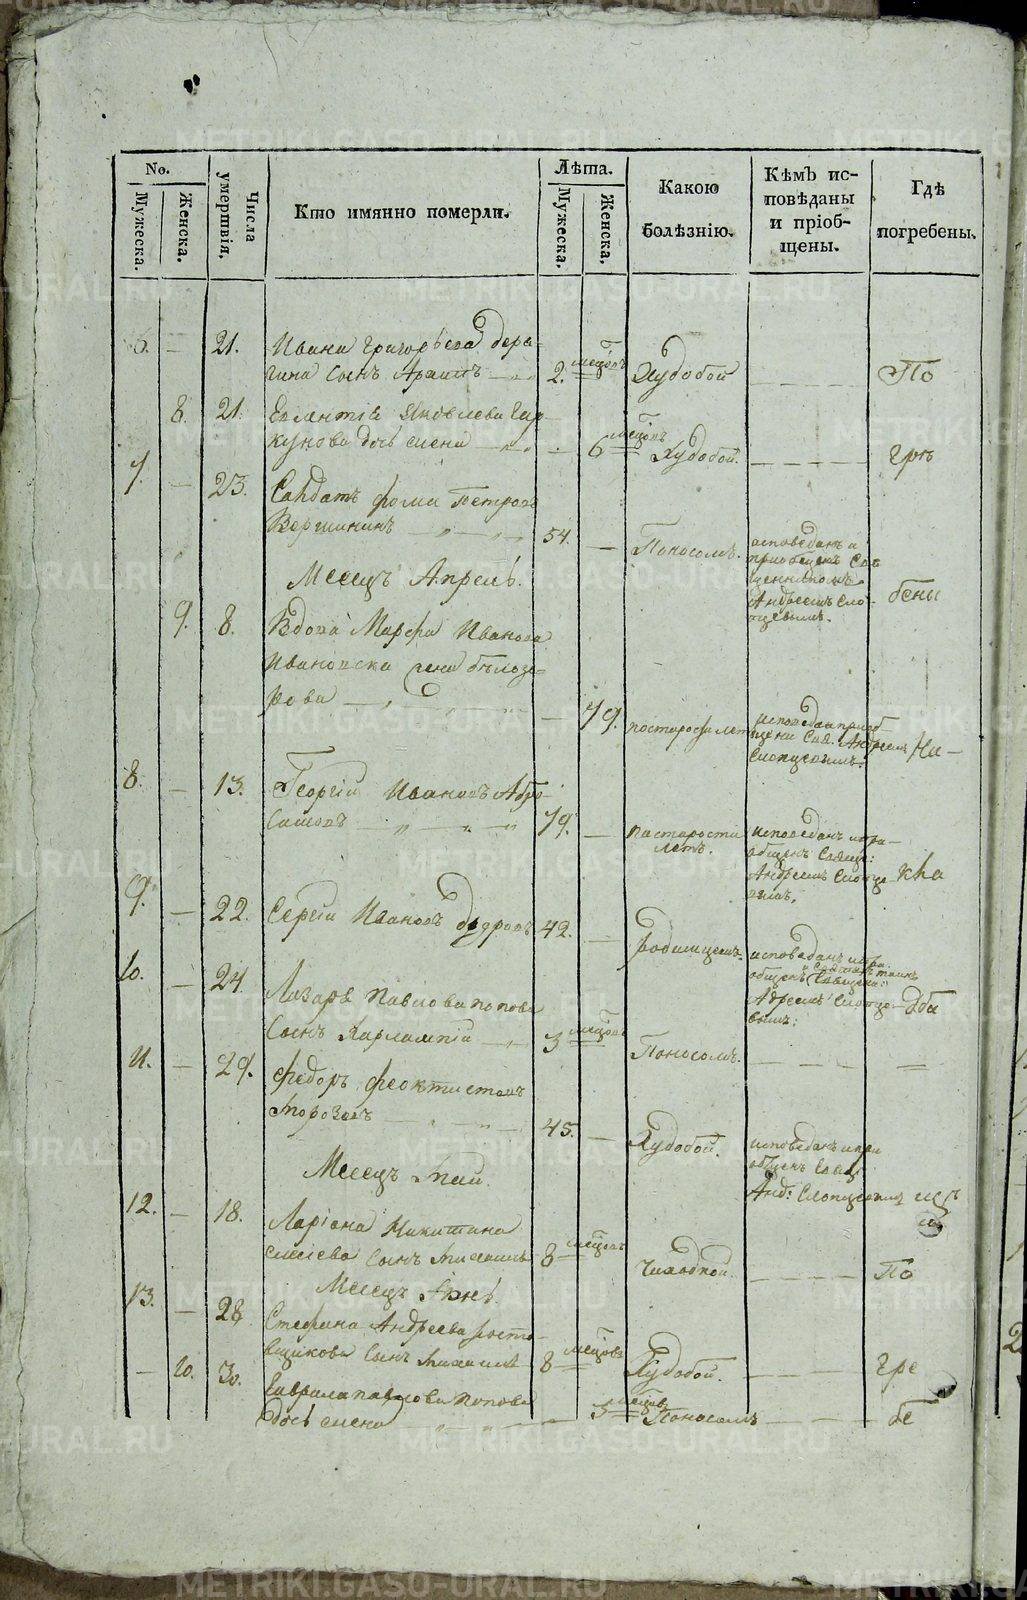 No.
Лѣта.
Мужеска.
Женска.
Числа умертвія.
Кто имянно померли.
Мужеска.
Женска.
Какою болѣзнію.
Кѣмъ ис-
повѣданы
и пріоб-
щены.
Гдѣ
погребены.
6. — 21. Ивана Григорьева
сынъ 2. месяцовъ Худобой По
8. 21. Евлантія Яковлева
дочь 6 месяцовъ Худобой. гре
7. — 23. Салдатъ Фома Петровъ
Вершининъ 54. — Поносомъ. исповеданъ и
приобщенъ Свя
щенникомъ
Андреемъ Сло
пцовымъ.
бены
Месецъ Апрель.
9. 8. Вдова Марфа Иванова
Ивановска жена Бѣлозе-
рова — 79. по старости летъ исповедана приоб
щена Свя. Андреемъ
Слопцовымъ.
На —
8. — 13. Георгій Ивановъ Абро
симовъ 79. — по старости
летъ. исповеданъ и при—
общенъ Свящ:
Андреемъ Слопцо
вымъ.
кла
9. — 22. Сергій Ивановъ 42. — Родимцемъ. исповеданъ и при
общенъ
Адреемъ Слопцо
вымъ:
дба
10. — 24. Лазаря Павлова Попова
сынъ Харлампій 3 месяцовъ Поносомъ. — —
11. — 29. Федоръ Феоктистовъ
Морозовъ 45. — Худобой. исповеданъ и при
общенъ Свящ:
Анд: Слопцовымъ
Месецъ Май.
12. — 18. Ларіона Никитина
сынъ 8 месяцовъ Чихоткой. По
Месецъ Іюнь.
13. — 28. Стефана Андреева Росто-
вщикова сынъ Михаилъ 8 месяцовъ Худобой. гре
— 10. 30. Гаврила Павлова Попова
дочь 3 месяцовъ Поносомъ бе
METRIKI.GASO-URAL.RU